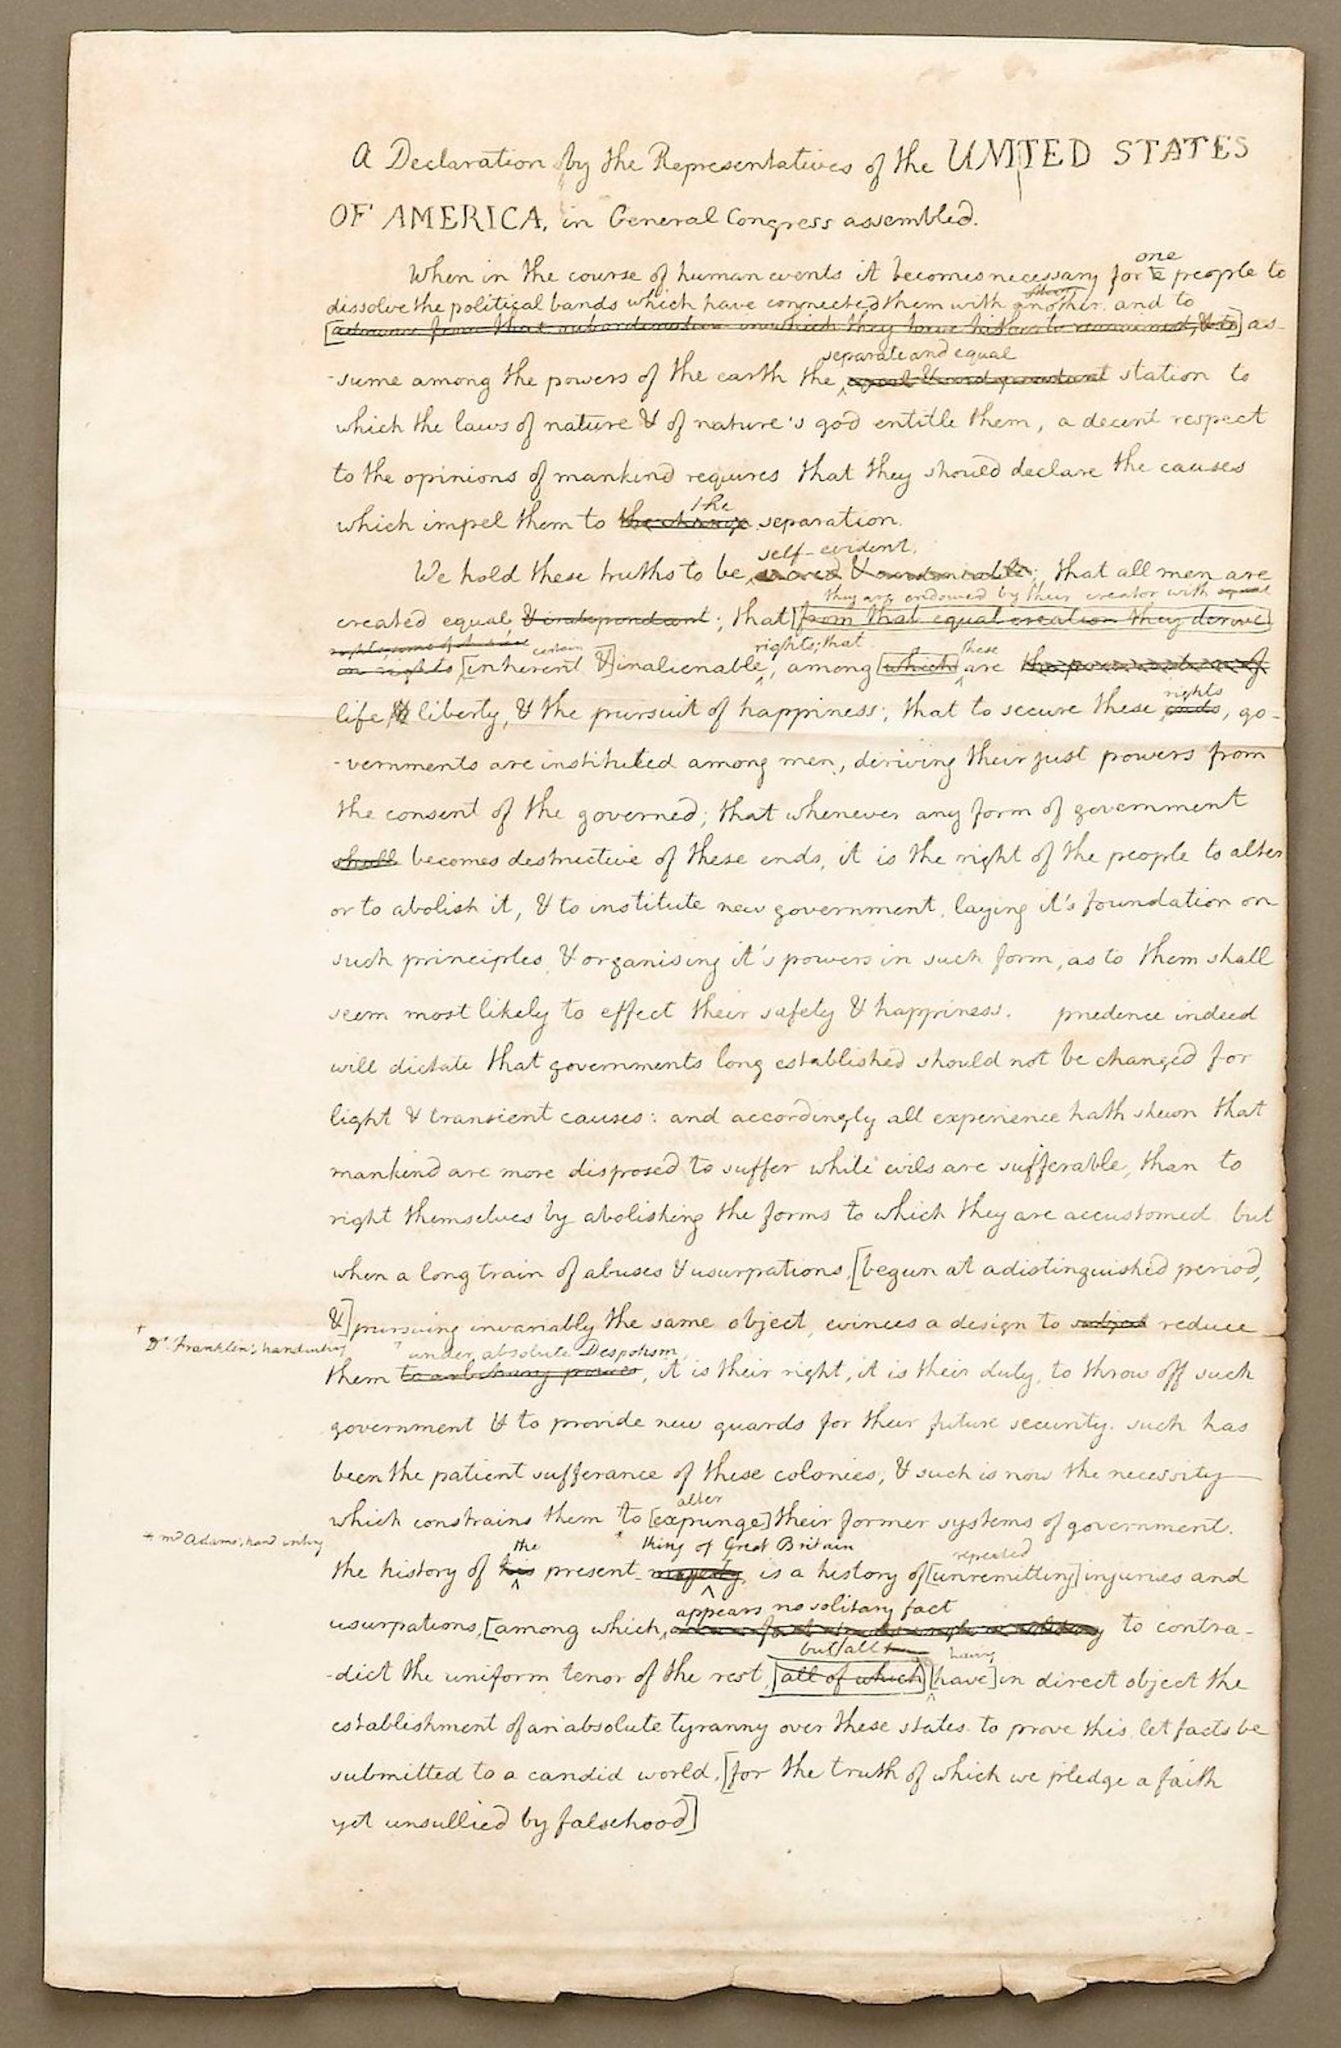 A Declaration by the Representatives of the UNITED STATES
OF AMERICA, in General Congress assembled.
one
When in the course of human events it becomes necessary for a people to
dissolve the political bands which have connected them with another, and to
[advance from that subordination in which they have hitherto remained, & to] as-
separate and equal
-sume among the powers of the earth the equal & independant station to
which the laws of nature & of nature's god entitle them, a decent respect
to the opinions of mankind requires that they should declare the causes
the
which impel them to the change separation.
self-evident,
We hold these truths to be sacred & undeniable; that all men are
they are endowed by their creator with equal
created equal & independant; that [from that equal creation they derive]
rights, some of which are certain rights; that these
in rights [inherent &] inalienable, among [which] are the preservation of
rights
life, & liberty, & the pursuit of happiness; that to secure these ends, go-
-vernments are instituted among men, deriving their just powers from
the consent of the governed; that whenever any form of government
shall becomes destructive of these ends, it is the right of the people to alter
or to abolish it, & to institute new government, laying it's foundation on
such principles & organising it's powers in such form, as to them shall
seem most likely to effect their safety & happiness. prudence indeed
will dictate that governments long established should not be changed for
light & transient causes: and accordingly all experience hath shewn that
mankind are more disposed to suffer while evils are sufferable, than to
right themselves by abolishing the forms to which they are accustomed but
when a long train of abuses & usurpations, [begun at a distinguished period,
&] pursuing invariably the same object, evinces a design to subject reduce
† Dr. Franklin's handwriting
under absolute Despotism,
them to arbitrary power, it is their right, it is their duty, to throw off such
government & to provide new guards for their future security. such has
been the patient sufferance of these colonies; & such is now the necessity
alter
which constrains them to [expunge] their former systems of government.
+ Mr Adams' handwriting
the king of Great Britain repeated
the history of his present majesty is a history of [unremitting] injuries and
appears no solitary fact
usurpations, [among which, to contra-
but all having
-dict the uniform tenor of the rest, [all of which] [have] in direct object the
establishment of an absolute tyranny over these states. to prove this, let facts be
submitted to a candid world, [for the truth of which we pledge a faith
yet unsullied by falsehood]